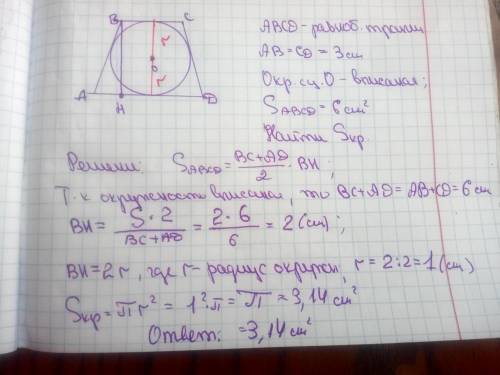 B C
r
O
r
A H D
ABCD - равноб. трапец
AB = CD = 3 см
Окр. с ц. O - вписанная;
S ABCD = 6 см²
Найти Sкр.
Решение: S ABCD = BC+AD / 2 · BH ;
Т.к окружность вписанная, то BC+AD = AB+CD = 6 см
BH = S·2 / BC+AD = 2·6 / 6 = 2 (см) ;
BH = 2r, где r - радиус окружн, r = 2:2 = 1 (см)
Sкр = πr² = 1²·π = π ≈ 3,14 см²
Ответ: ≈3,14 см²